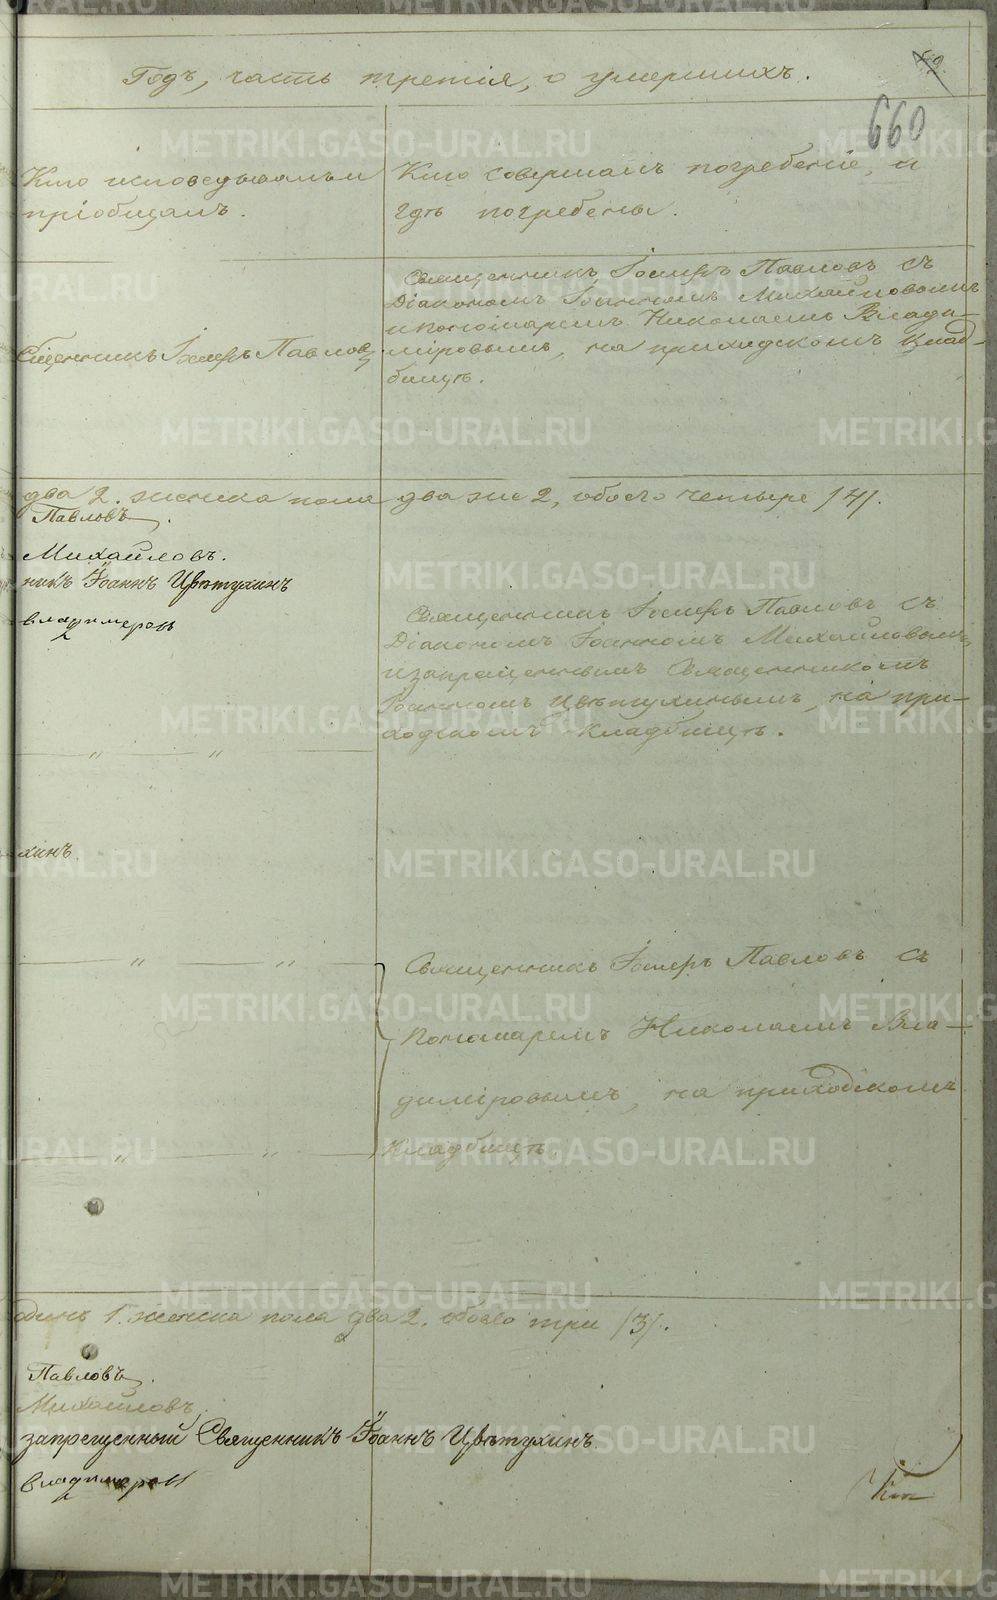 Годъ, часть третія, о умершихъ.
660
Кто исповедывалъ и
пріобщалъ.
Кто совершалъ погребеніе, и
гдѣ погребены.
Священникъ Іосифъ Павловъ съ
Діакономъ Іоанномъ Михайловымъ
и пономаремъ Николаемъ Влади-
міровымъ, на приходскомъ клад-
бищѣ.
Священникъ Іосифъ Павловъ
два 2. женска пола два же 2, обоего четыре /4/.
Павловъ.
Михайловъ.
никъ Іоаннъ Цвѣтухинъ
Владимеровъ
Священникъ Іосифъ Павловъ съ
Діакономъ Іоанномъ Михайловымъ
и запрещеннымъ Священникомъ
Іоанномъ Цвѣтухинымъ, на при-
ходскомъ кладбищѣ.
— " — " —
хинъ.
— " — " —
Священникъ Іосифъ Павловъ съ
Пономаремъ Николаемъ Вла-
диміровымъ, на приходскомъ
кладбищѣ.
— " — " —
одинъ 1. женска пола два 2. обоего три /3/.
Павловъ.
Михайловъ.
запрещенный Священникъ Іоаннъ Цвѣтухинъ.
Владимеровъ
METRIKI.GASO-URAL.RU